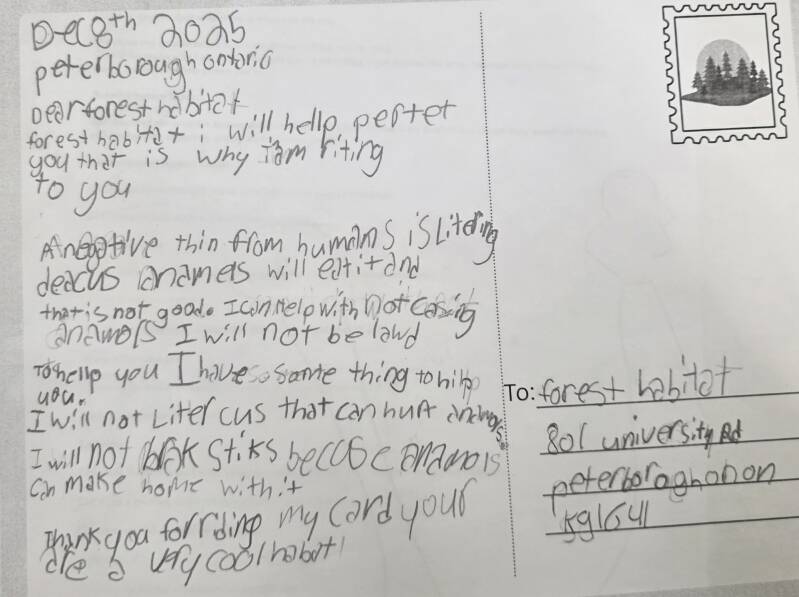 Dec 8th 2025
peterborough ontario
Dear forest habitat
forest habitat i will hellp pertet
you that is why i'am riting
to you
A negative thin from humans is Litering
deacus anamels will eat it and
that is not good. I can Help with not casing
anamols I will not be lawd
To hellp you I have some thing to hilp
you.
I will not Liter cus that can hurt anamols.
I will not brak stiks becuse anamols
can make home with it
Thank you for rding my card your
are a very cool habat!
To: forest habitat
801 university Rd
peterboraghonon
k9l6411